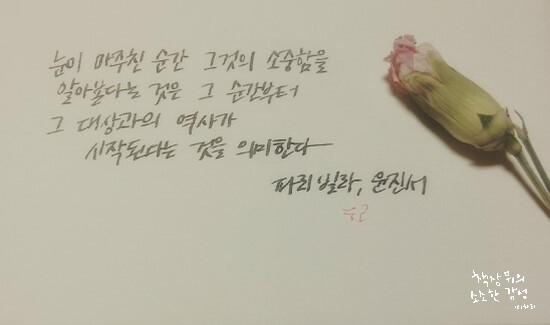 눈이 마주친 순간 그것의 소중함을
알아본다는 것은 그 순간부터
그 대상과의 역사가
시작된다는 것을 의미한다
파리 빌라, 윤진서
책장 위의
소소한 감성